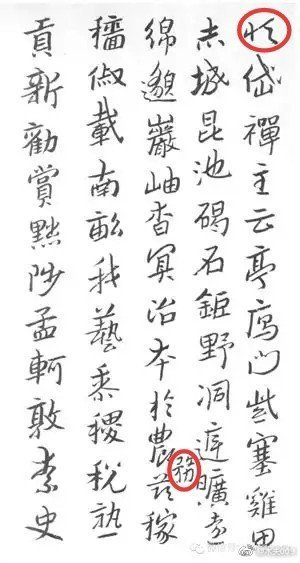 岱禪主云亭雁門紫塞雞田
赤城昆池碣石鉅野洞庭曠遠
綿邈巖岫杳冥治本於農務茲稼
穡俶載南畝我藝黍稷稅熟
貢新勸賞黜陟孟軻敦素史